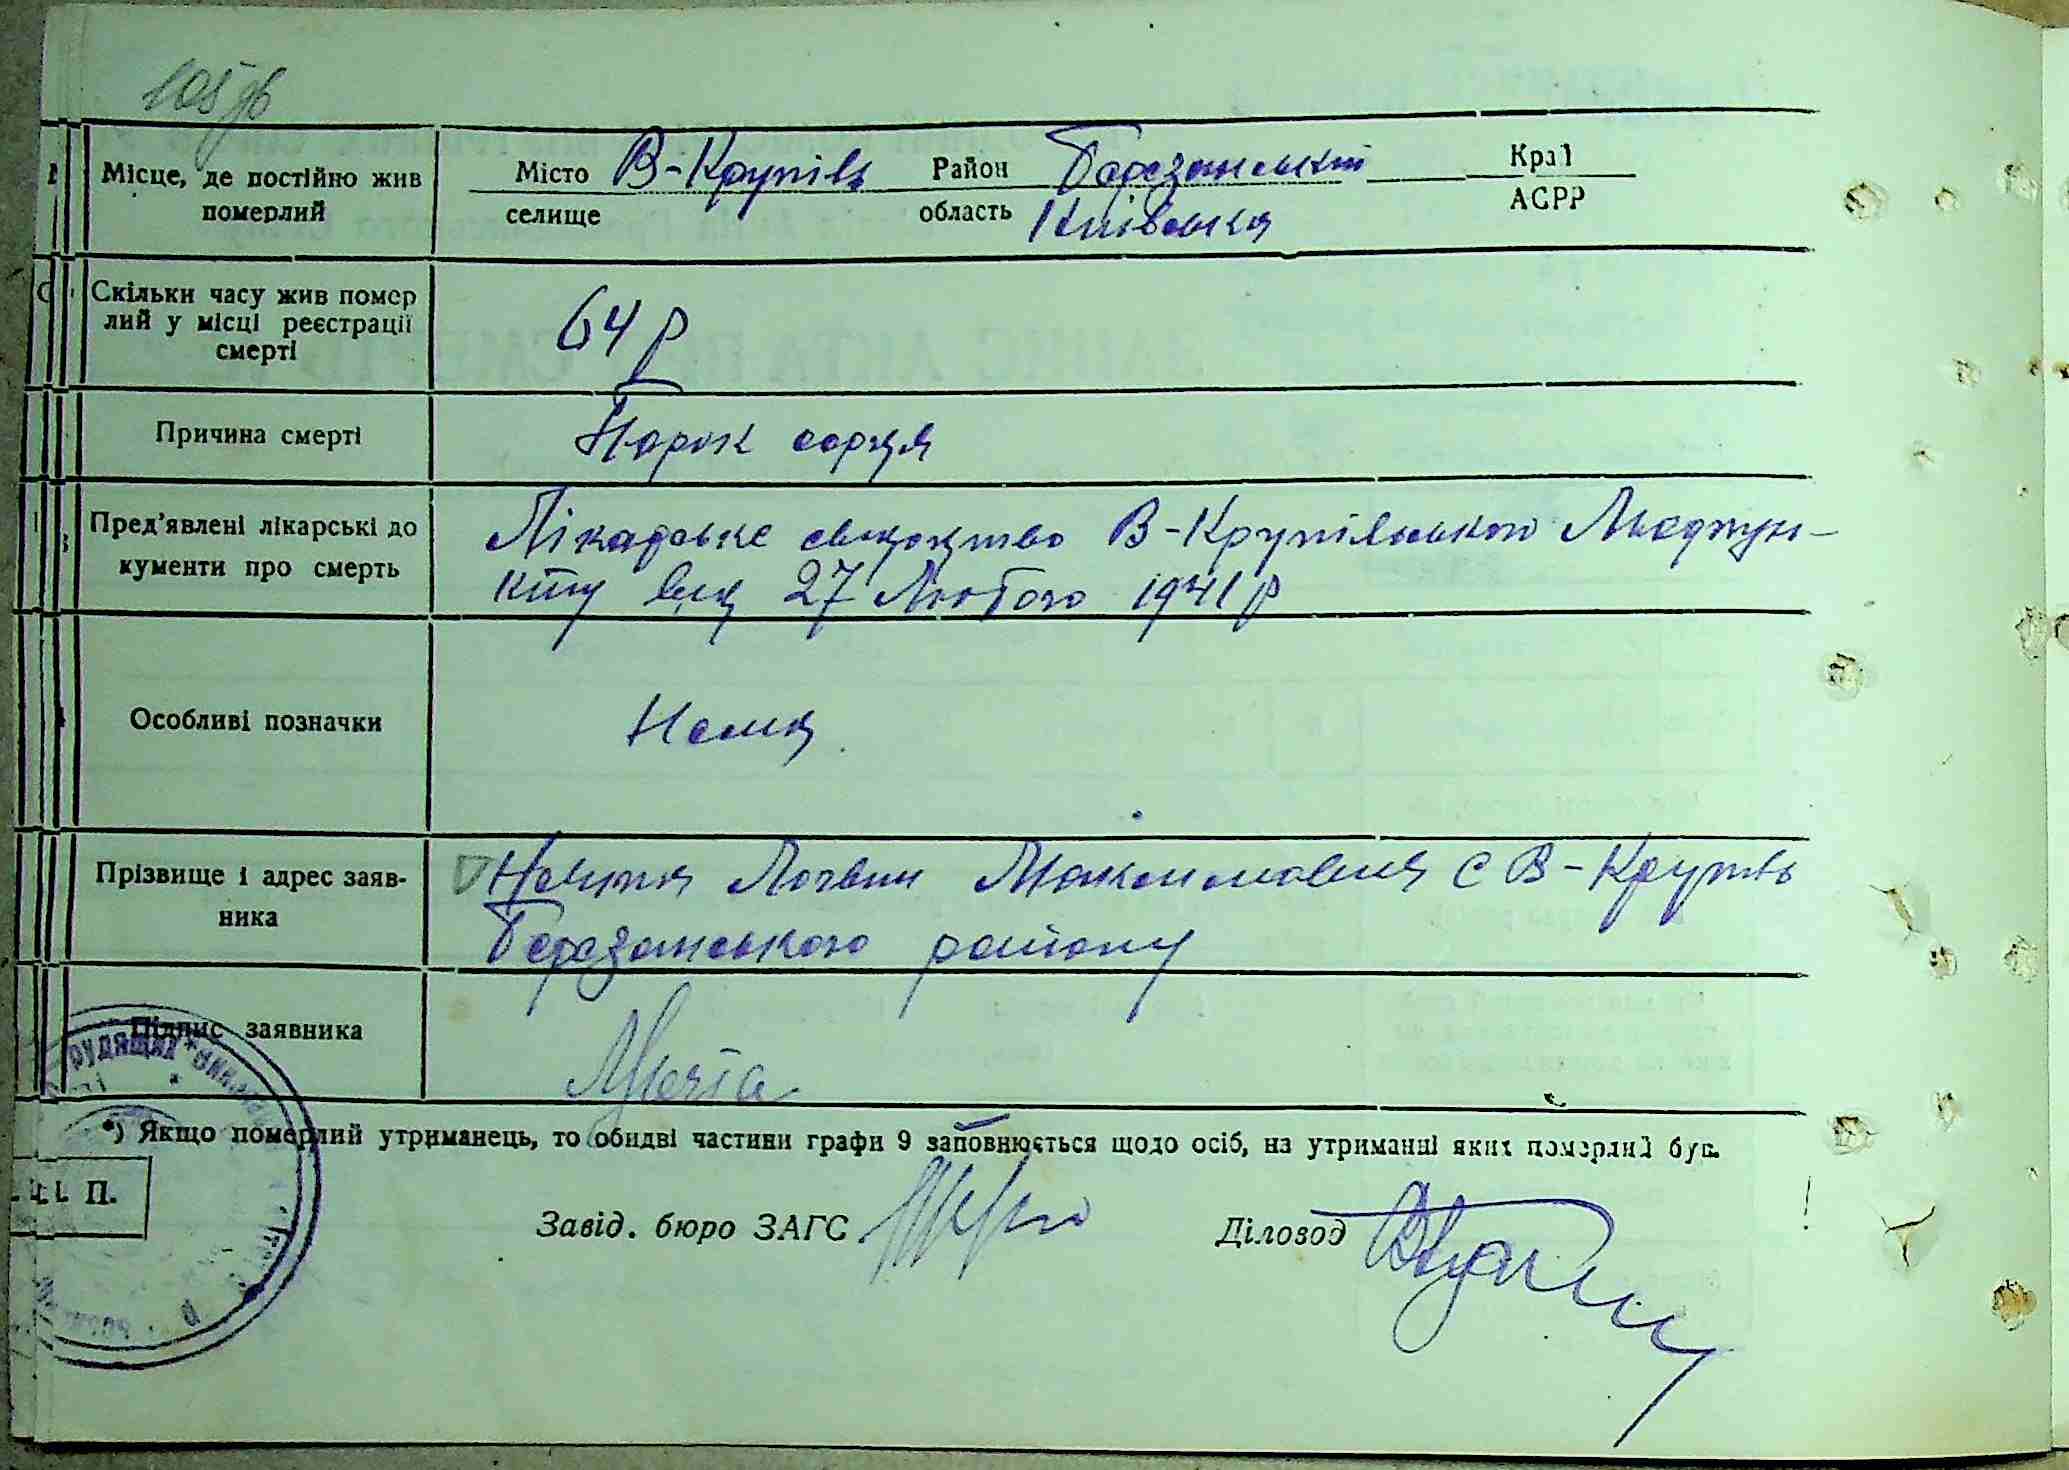 105 зв
Місце, де постійно жив
померлий
Місто В-Крупіль Район Березанський Край
селище область Київська АСРР
Скільки часу жив помер
лий у місці реєстрації
смерті
64 р
Причина смерті
Порок серця
Пред'явлені лікарські до
кументи про смерть
Лікарське свидоцтво В-Крупільського Медпун-
кту від 27 Лютого 1941 р
Особливі позначки
Нема
Прізвище і адрес заяв-
ника
Логвин Максимович с В-Крупіль
Березанського району
Підпис заявника
*) Якщо померлий утриманець, то обидві частини графи 9 заповнюється щодо осіб, на утриманні яких померлий був.
П.
Завід. бюро ЗАГС
Діловод